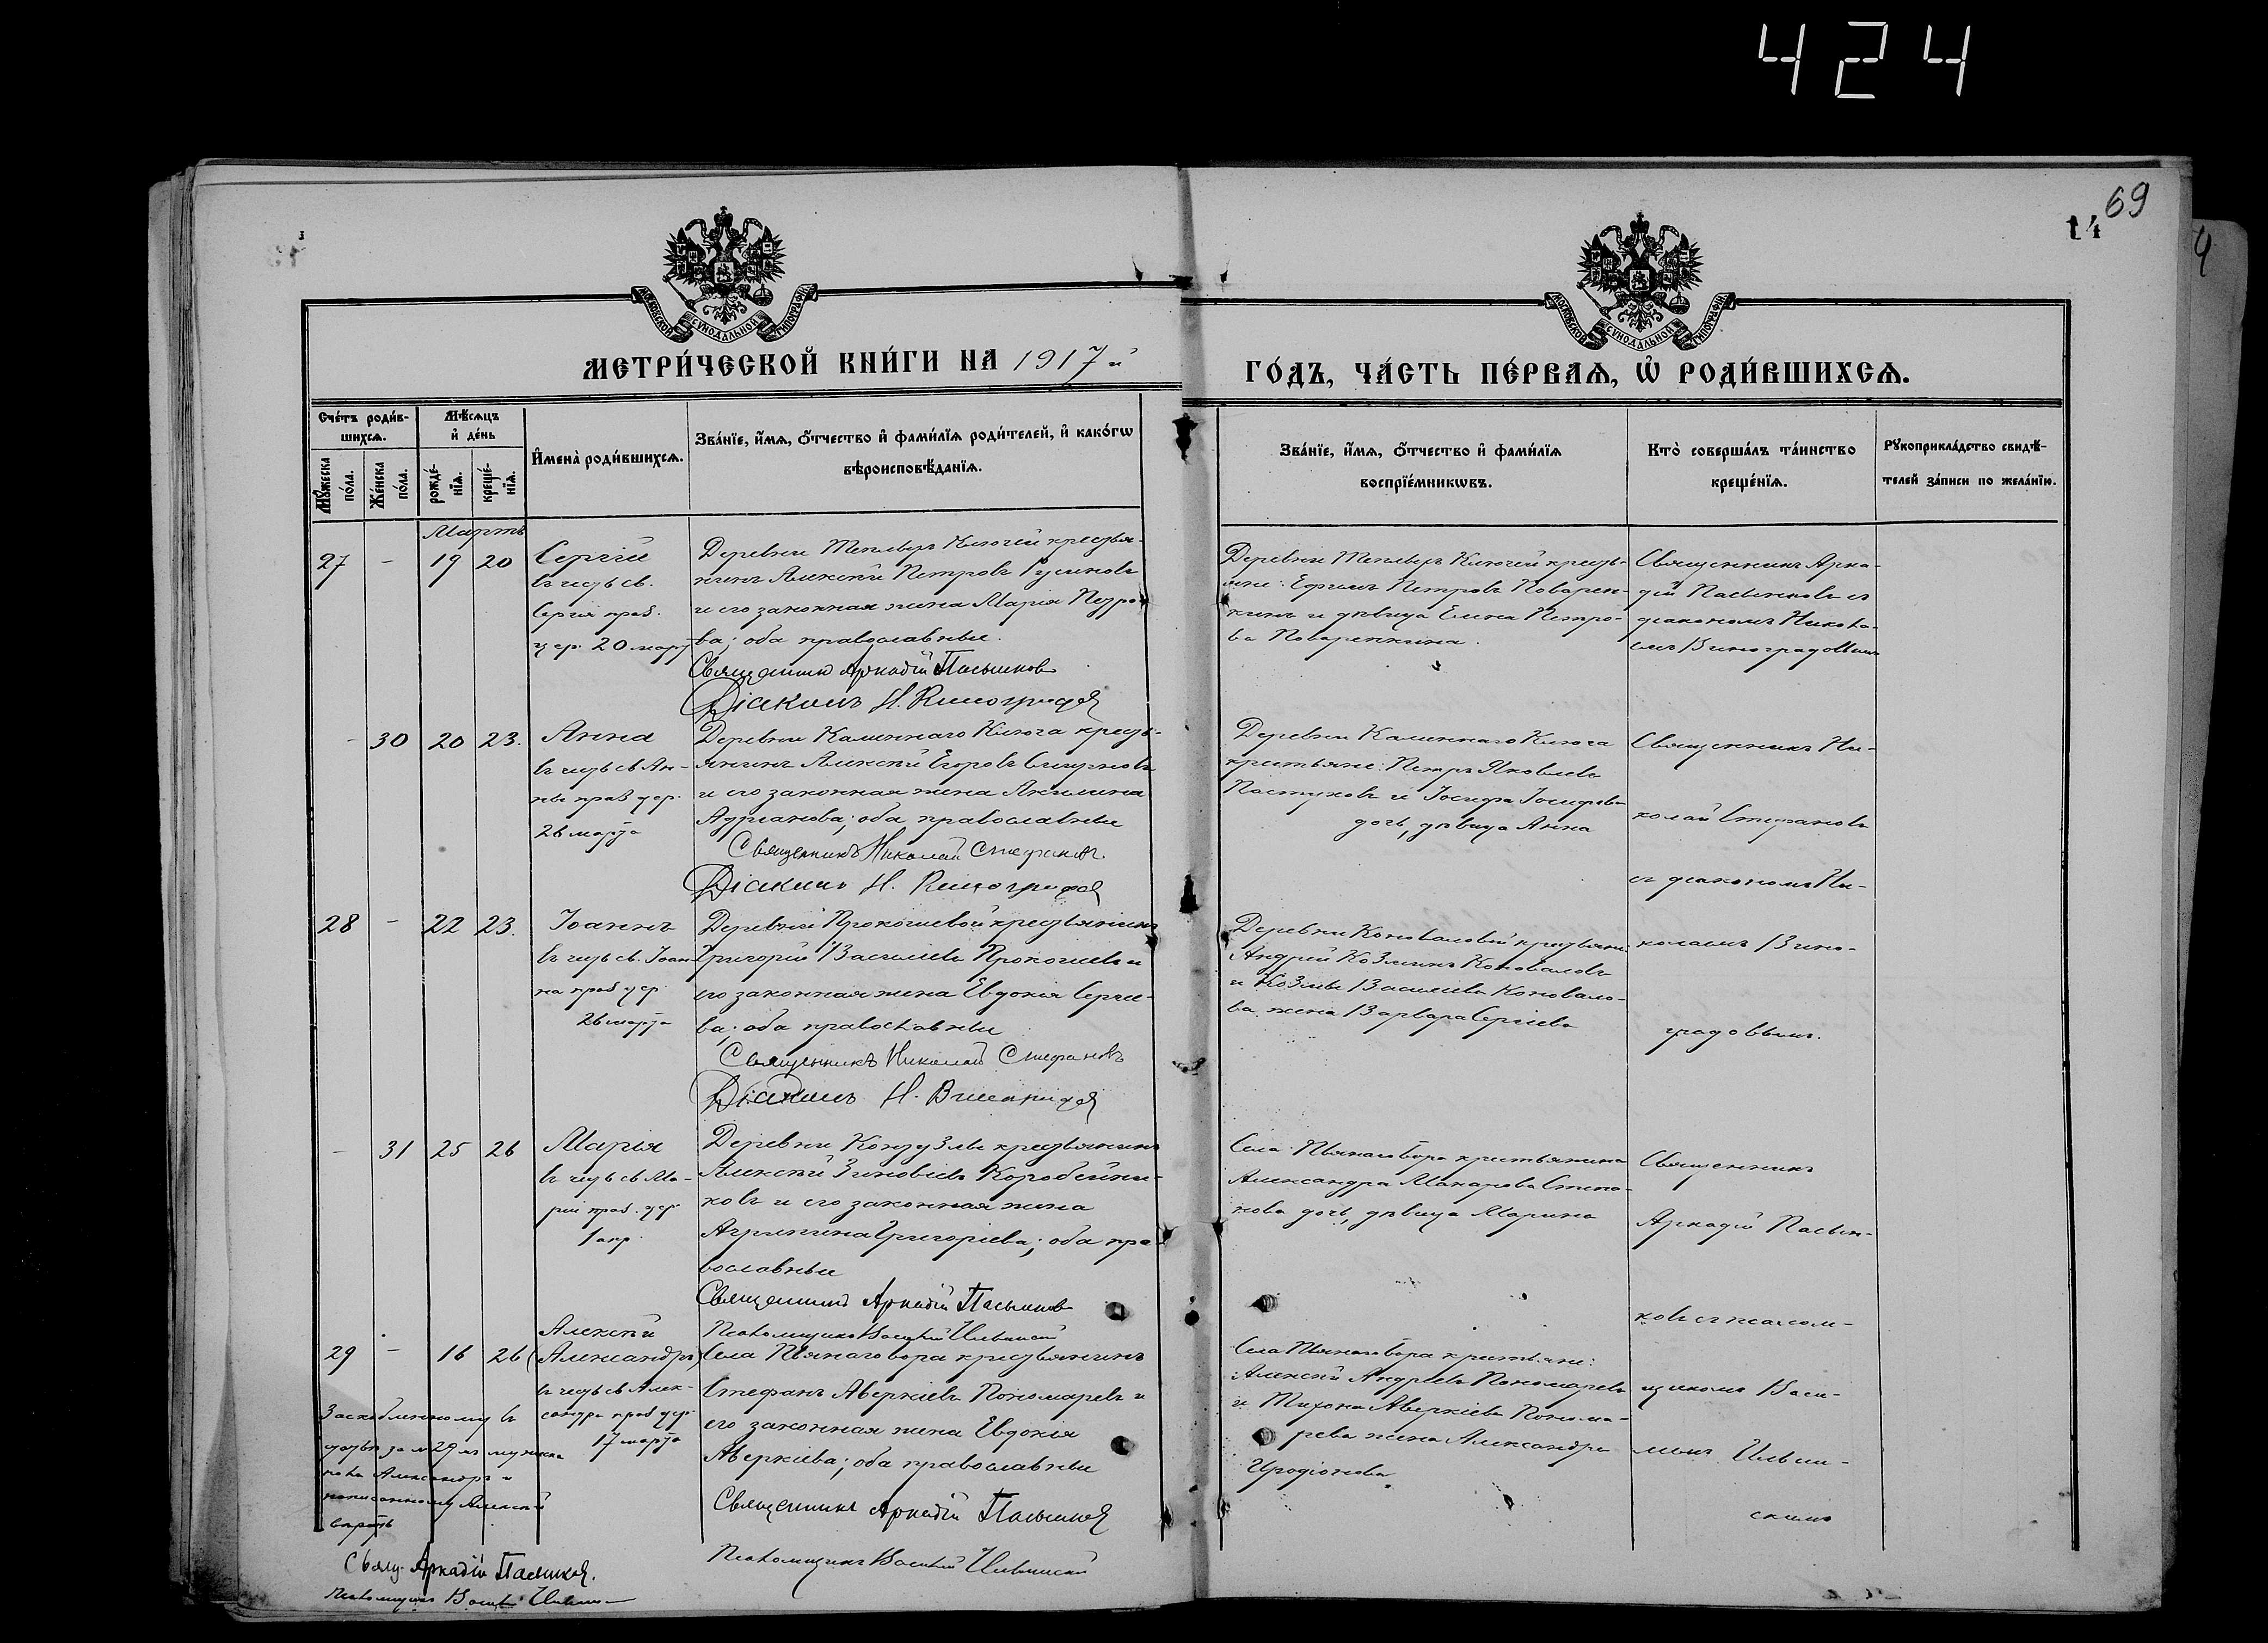 424
69
14
МОСКОВСКОЙ СѴНОДАЛЬНОЙ ТИПОГРАФІИ
МОСКОВСКОЙ СѴНОДАЛЬНОЙ ТИПОГРАФІИ
МЕТРИ́ЧЕСКОЙ КНИ́ГИ НА 1917 й
ГО́ДЪ, ЧА́СТЬ ПЕ́РВАѦ, Ѡ҆ РОДИ́ВШИХСѦ.
Сче́тъ роди́в-
шихсѧ.
Мѣ́сѧцъ
и҆ де́нь
Мꙋ́жеска
по́ла.
Же́нска
по́ла.
рожде́-
нїѧ.
креще́-
нїѧ.
И҆мена̀ роди́вшихсѧ.
Зва́нїе, и҆́мѧ, ѻ҆́тчество и҆ фами́лїѧ роди́телей, и҆ како́гѡ
вѣроисповѣ́данїѧ.
Зва́нїе, и҆́мѧ, ѻ҆́тчество и҆ фами́лїѧ
воспрїе́мникѡвъ.
Кто̀ соверша́лъ та́инство
креще́нїѧ.
Рꙋкоприкла́дство свидѣ́-
телей за́писи по жела́нїю.
Мартъ
27 - 19 20
Сергій
въ честь св.
Сергія праб.
цер. 20 март
Деревни Ключей крестья-
нинъ Алексѣй Петровъ Русиновъ
и его законная жена Марія Петро-
ва; оба православные.
Священникъ Аркадій Пасынков
Діаконъ Н. Виноградов
Деревни Ключей кресть-
яне: Ефимъ Петровъ Поварен-
кинъ и дѣвица Елена Петро-
ва Поваренкина.
Священникъ Арка-
дій Пасынковъ съ
діакономъ Никола-
емъ Виноградовым
- 30 20 23.
Анна
въ честь св Ан-
ны праб цер.
26 марта
Деревни Каменнаго Ключа кресть-
янинъ Алексѣй Егоровъ Смирновъ
и его законная жена Ангелина
Адрианова; оба православные
Священникъ Николай Стефановъ.
Діаконъ Н. Виноградов
Деревни Каменнаго Ключа
крестьяне: Петръ Яковлевъ
Пастуховъ и Іосифа Іосифова
дочь, дѣвица Анна
Священникъ Ни-
колай Стефановъ
съ діакономъ Ни-
28 - 22 23.
Іоаннъ
въ честь св. Іоан-
на праб цер.
26 марта
Деревни Прокошевой крестьянинъ
Григорій Васильевъ Прокошевъ и
его законная жена Евдокія Сергіе-
ва; оба православные
Священникъ Николай Стефановъ
Діаконъ Н. Виноградов
Деревни Коноваловой крестьяне:
Андрей Козминъ Коноваловъ
и Козмы Васильева Коновало-
ва жена Варвара Сергіева
колаемъ Вино-
градовымъ.
- 31 25 26
Марія
въ честь св Ма-
ріи праб. цер.
1 апр.
Деревни Кондузлы крестьянинъ
Алексѣй Зиновіевъ Коробейни-
ковъ и его законная жена
Агрипина Григоріева; оба пра-
вославные
Священникъ Аркадій Пасынков
Псаломщикъ Василій Ильинскій
Села Пьянаго бора крестьянина
Александра Макарова Степа-
нова дочь, дѣвица Марина
Священникъ
Аркадій Пасын-
ковъ съ псалом-
Алексѣй
29 - 16 26
(Александръ)
въ честь св Алек-
сандра праб цер.
17 марта
Села Пьянаго бора крестьянинъ
Стефанъ Аверкіевъ Пономаревъ и
его законная жена Евдокія
Аверкіева; оба православные
Священникъ Аркадій Пасынков
Псаломщикъ Василій Ильинскій
Села Пьянаго бора крестьяне:
Алексѣй Андреевъ Пономаревъ
и Тихона Аверкіева Понома-
рева жена Александра
Иродіонова.
щикомъ Васи-
ліемъ Ильин-
скимъ
Заскобленному въ
статьѣ за № 29 мъ мужска
пола Александръ и
написанному Алексѣй
вѣрить
Свящ. Аркадій Пасынков.
Псаломщикъ Васил Ильин